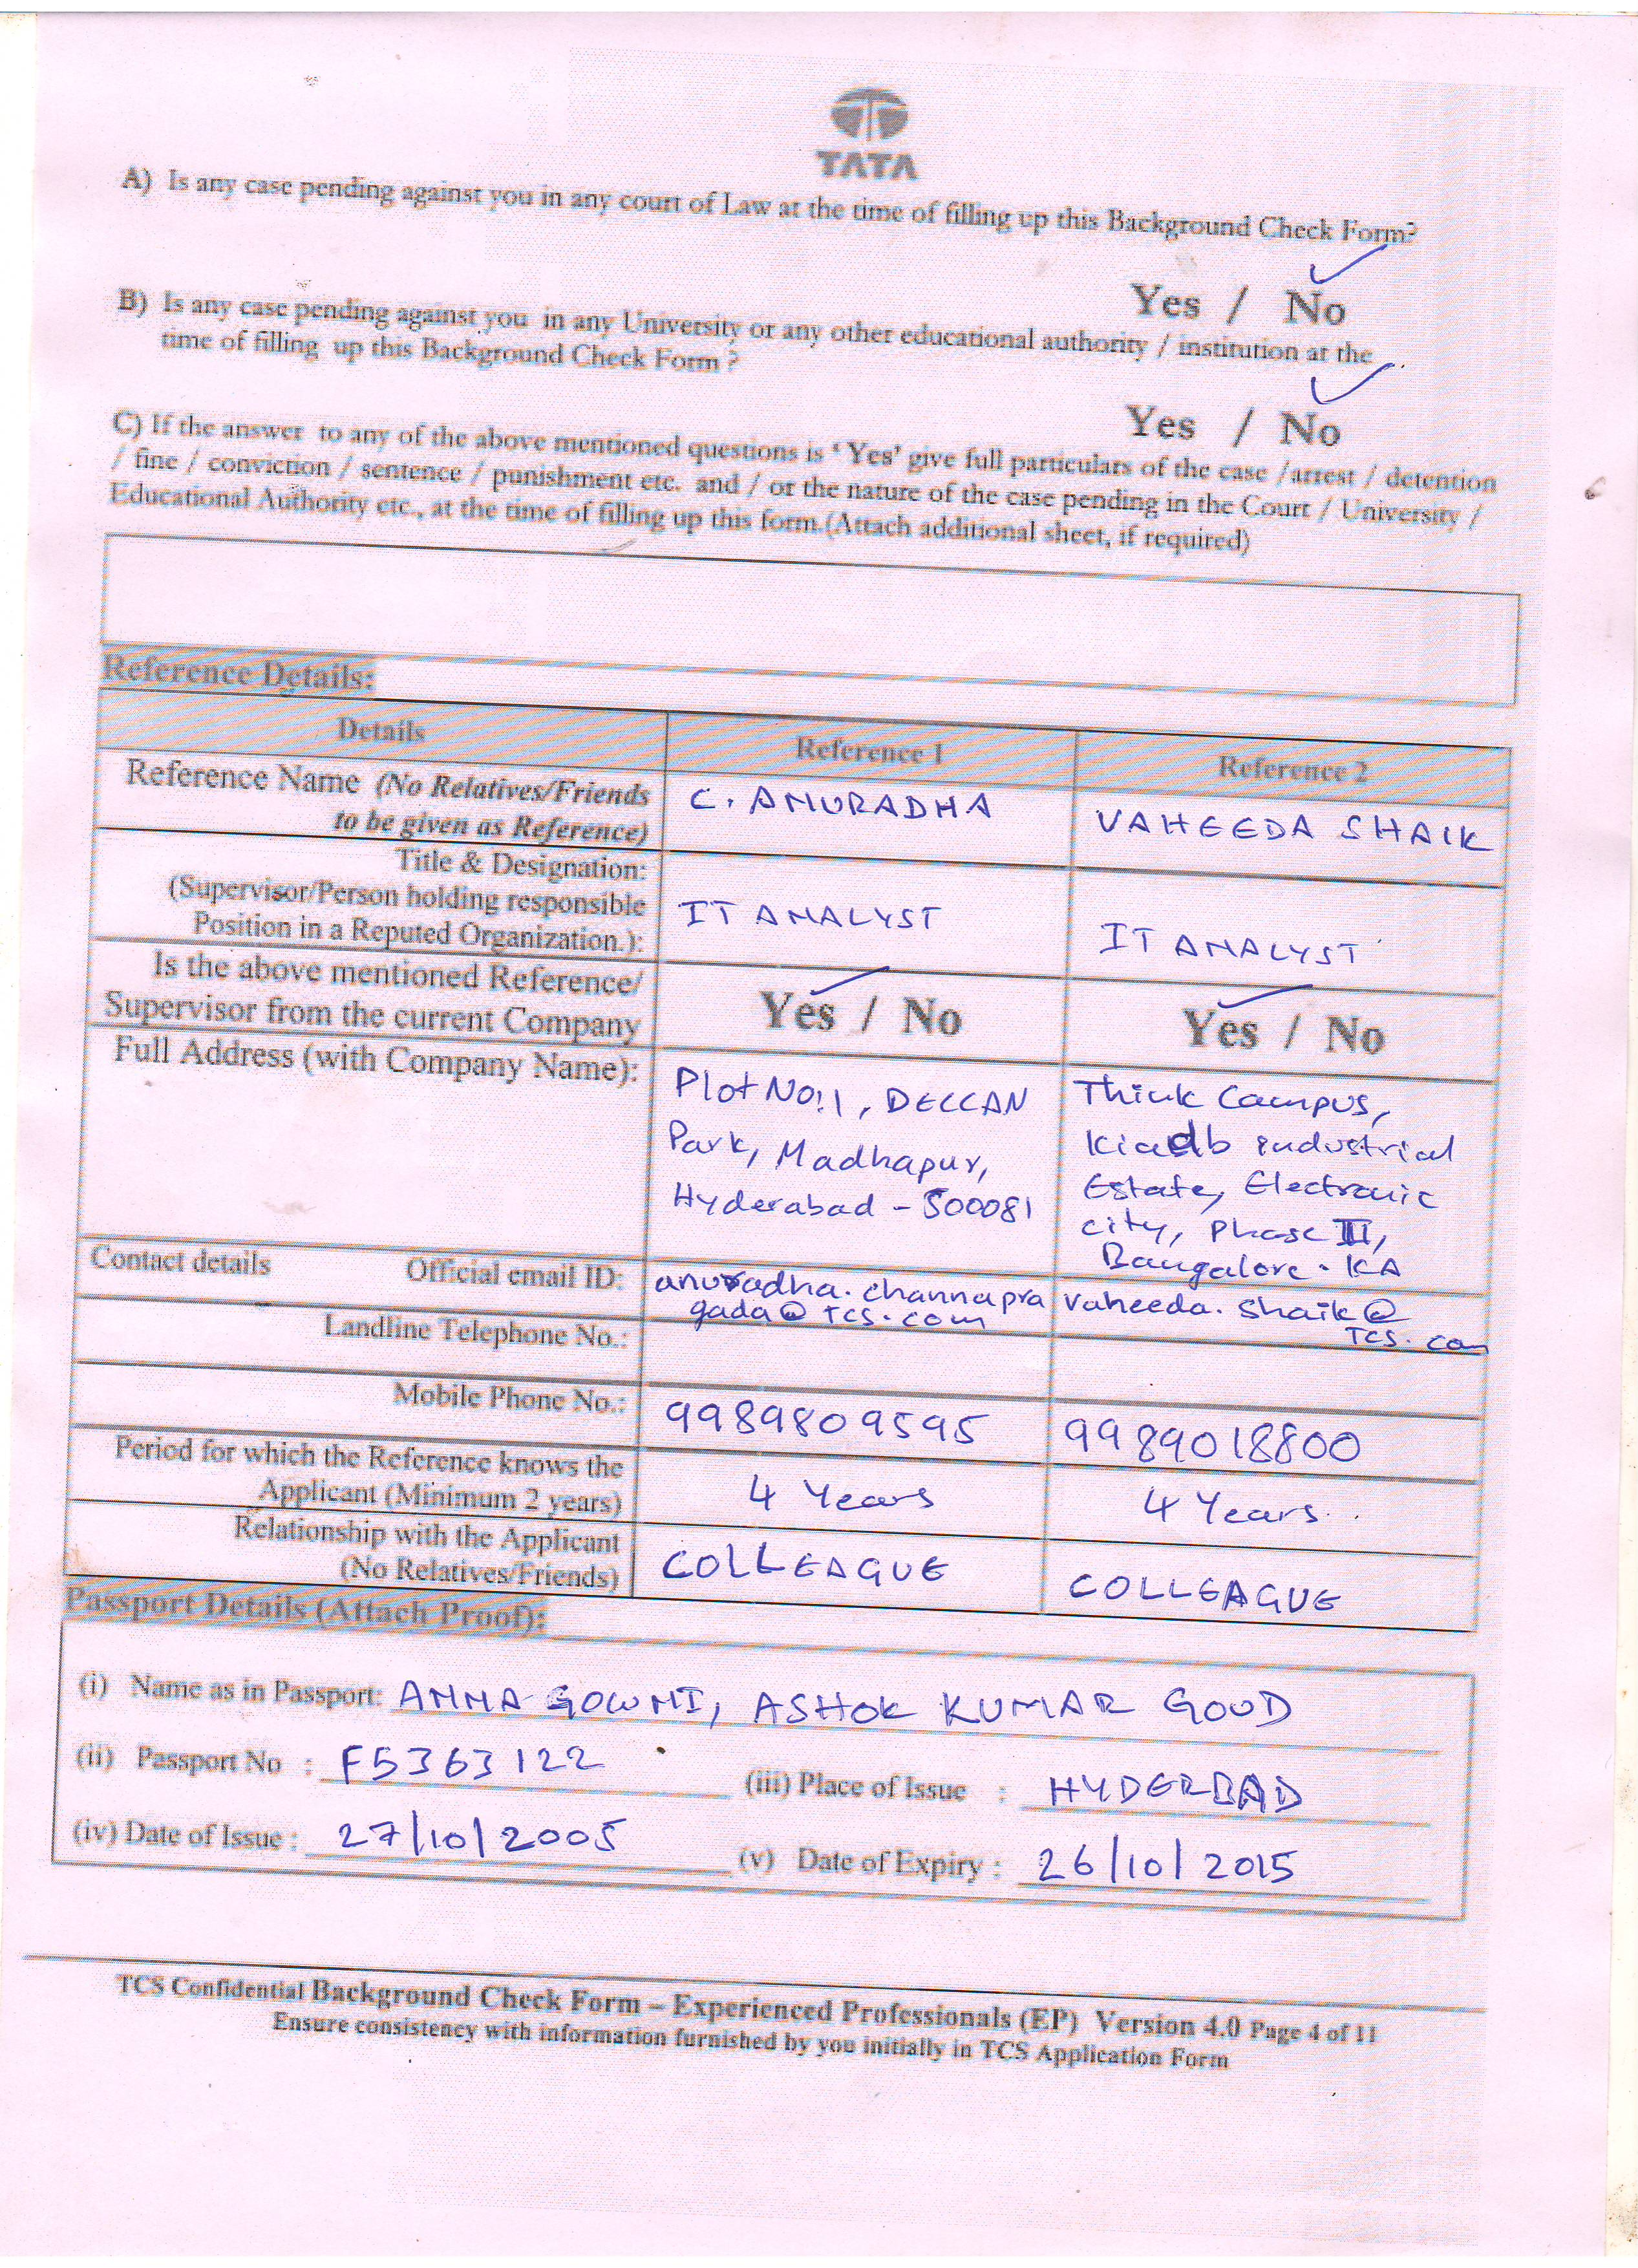 TATA
A) Is any case pending against you in any court of Law at the time of filling up this Background Check Form?
Yes / No
B) Is any case pending against you in any University or any other educational authority / institution at the
time of filling up this Background Check Form ?
Yes / No
C) If the answer to any of the above mentioned questions is ‘ Yes’ give full particulars of the case /arrest / detention
/ fine / conviction / sentence / punishment etc. and / or the nature of the case pending in the Court / University /
Educational Authority etc., at the time of filling up this form.(Attach additional sheet, if required)
Reference Details:
Details Reference 1 Reference 2
Reference Name (No Relatives/Friends
to be given as Reference)
C. ANURADHA
VAHEEDA SHAIK
Title & Designation:
(Supervisor/Person holding responsible
Position in a Reputed Organization.):
IT ANALYST
IT ANALYST
Is the above mentioned Reference/
Supervisor from the current Company
Yes / No
Yes / No
Full Address (with Company Name):
Plot No:1, DECCAN
Park, Madhapur,
Hyderabad - 500081
Think Campus,
Kiadb industrial
Estate, Electronic
city, Phase II,
Bangalore. KA
Contact details Official email ID:
anuradha.channapra
gada@TCS.com
Vaheeda.Shaik@
TCS.com
Landline Telephone No.:
Mobile Phone No.:
9989809595
9989018800
Period for which the Reference knows the
Applicant (Minimum 2 years)
4 Years
4 Years.
Relationship with the Applicant
(No Relatives/Friends)
COLLEAGUE
COLLEAGUE
Passport Details (Attach Proof):
(i) Name as in Passport: ANNA GOWNI, ASHOK KUMAR GOUD
(ii) Passport No : F5363122
(iii) Place of Issue : HYDERBAD
(iv) Date of Issue : 27/10/2005
(v) Date of Expiry : 26/10/2015
TCS Confidential Background Check Form – Experienced Professionals (EP) Version 4.0 Page 4 of 11
Ensure consistency with information furnished by you initially in TCS Application Form